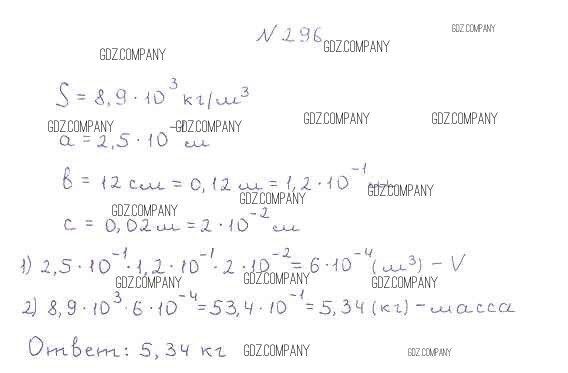 N 296
GDZ.COMPANY
GDZ.COMPANY
GDZ.COMPANY
S = 8,9 · 10³ кг/м³
GDZ.COMPANY
GDZ.COMPANY
GDZ.COMPANY
GDZ.COMPANY
a = 2,5 · 10⁻¹ м
в = 12 см = 0,12 м = 1,2 · 10⁻¹ м
GDZ.COMPANY
GDZ.COMPANY
GDZ.COMPANY
c = 0,02 м = 2 · 10⁻² м
1) 2,5 · 10⁻¹ · 1,2 · 10⁻¹ · 2 · 10⁻² = 6 · 10⁻⁴ (м³) – V
GDZ.COMPANY
GDZ.COMPANY
GDZ.COMPANY
2) 8,9 · 10³ · 6 · 10⁻⁴ = 53,4 · 10⁻¹ = 5,34 (кг) – масса
Ответ: 5,34 кг
GDZ.COMPANY
GDZ.COMPANY